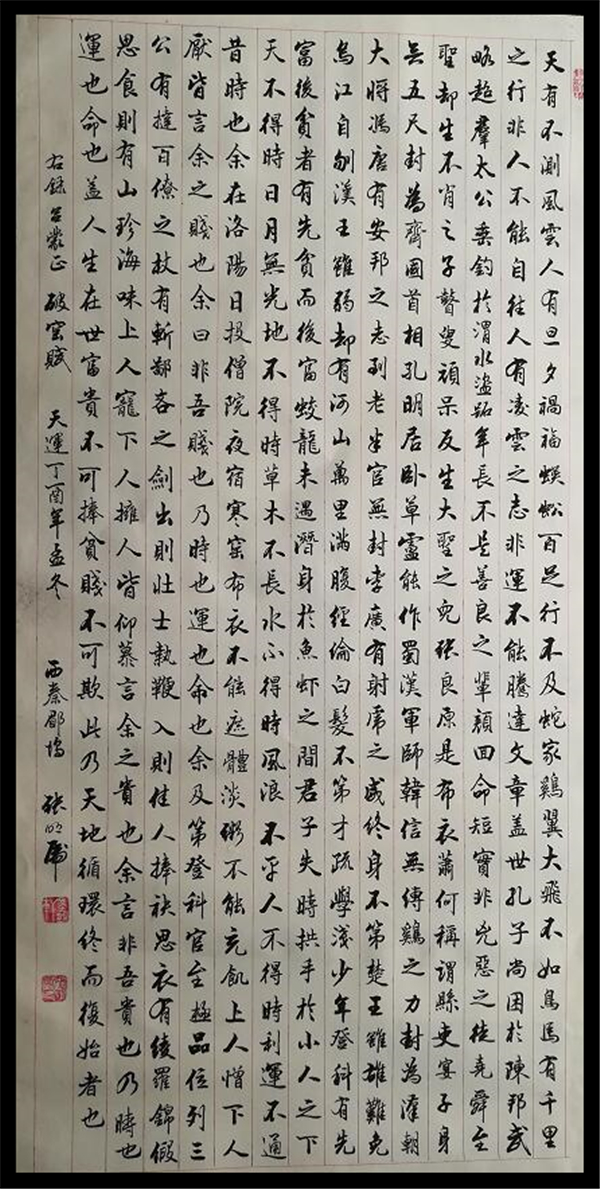 天有不測風雲人有旦夕禍福蜈蚣百足行不及蛇家鷄翼大飛不如鳥馬有千里
之行非人不能自往人有凌雲之志非運不能騰達文章盖世孔子尚困於陳邦武
略超羣太公垂釣於渭水盜跖年長不是善良之輩顏回命短實非兇惡之徒堯舜至
聖却生不肖之子瞽叟頑呆反生大聖之兒張良原是布衣蕭何稱謂縣吏宴子身
無五尺封為齊國首相孔明居卧草廬能作蜀漢軍師韓信無縛鷄之力封為漢朝
大將馮唐有安邦之志到老半官無封李廣有射虎之威終身不第楚王雖雄難免
烏江自刎漢王雖弱却有河山萬里滿腹經綸白髮不第才疏學淺少年登科有先
富後貧者有先貧而後富蛟龍未遇潛身於魚虾之間君子失時拱手於小人之下
天不得時日月無光地不得時草木不長水不得時風浪不平人不得時利運不通
昔時也余在洛陽日投僧院夜宿寒窑布衣不能遮體淡粥不能充飢上人憎下人
厭皆言余之賤也余曰非吾賤也乃時也運也命也余及第登科官至極品位列三
公有撻百僚之杖有斬鄙吝之劍出則壯士執鞭入則佳人捧袂思衣有綾羅錦假
思食則有山珍海味上人寵下人擁人皆仰慕言余之貴也余言非吾貴也乃時也
運也命也盖人生在世富貴不可捧貧賤不可欺此乃天地循環終而復始者也
右錄呂蒙正破窑賦 天運丁酉年孟冬 西秦郿塢 張明